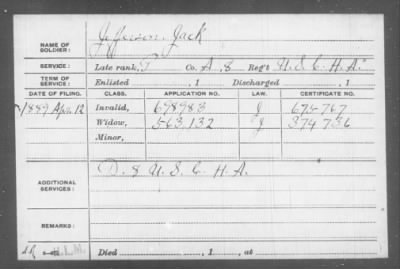 NAME OF SOLDIER: Jefferson, Jack
SERVICE: Late rank, P Co. A, 8 Reg't U. S. C. H. A.
TERM OF SERVICE: Enlisted , 1 Discharged , 1
DATE OF FILING. CLASS. APPLICATION NO. LAW. CERTIFICATE NO.
1889 Apr. 12 Invalid, 698983 J 675767
Widow, 563.132 J 374736
Minor,
ADDITIONAL SERVICES: D. 8 U. S. C. H. A.
REMARKS:
Died , 1 , at